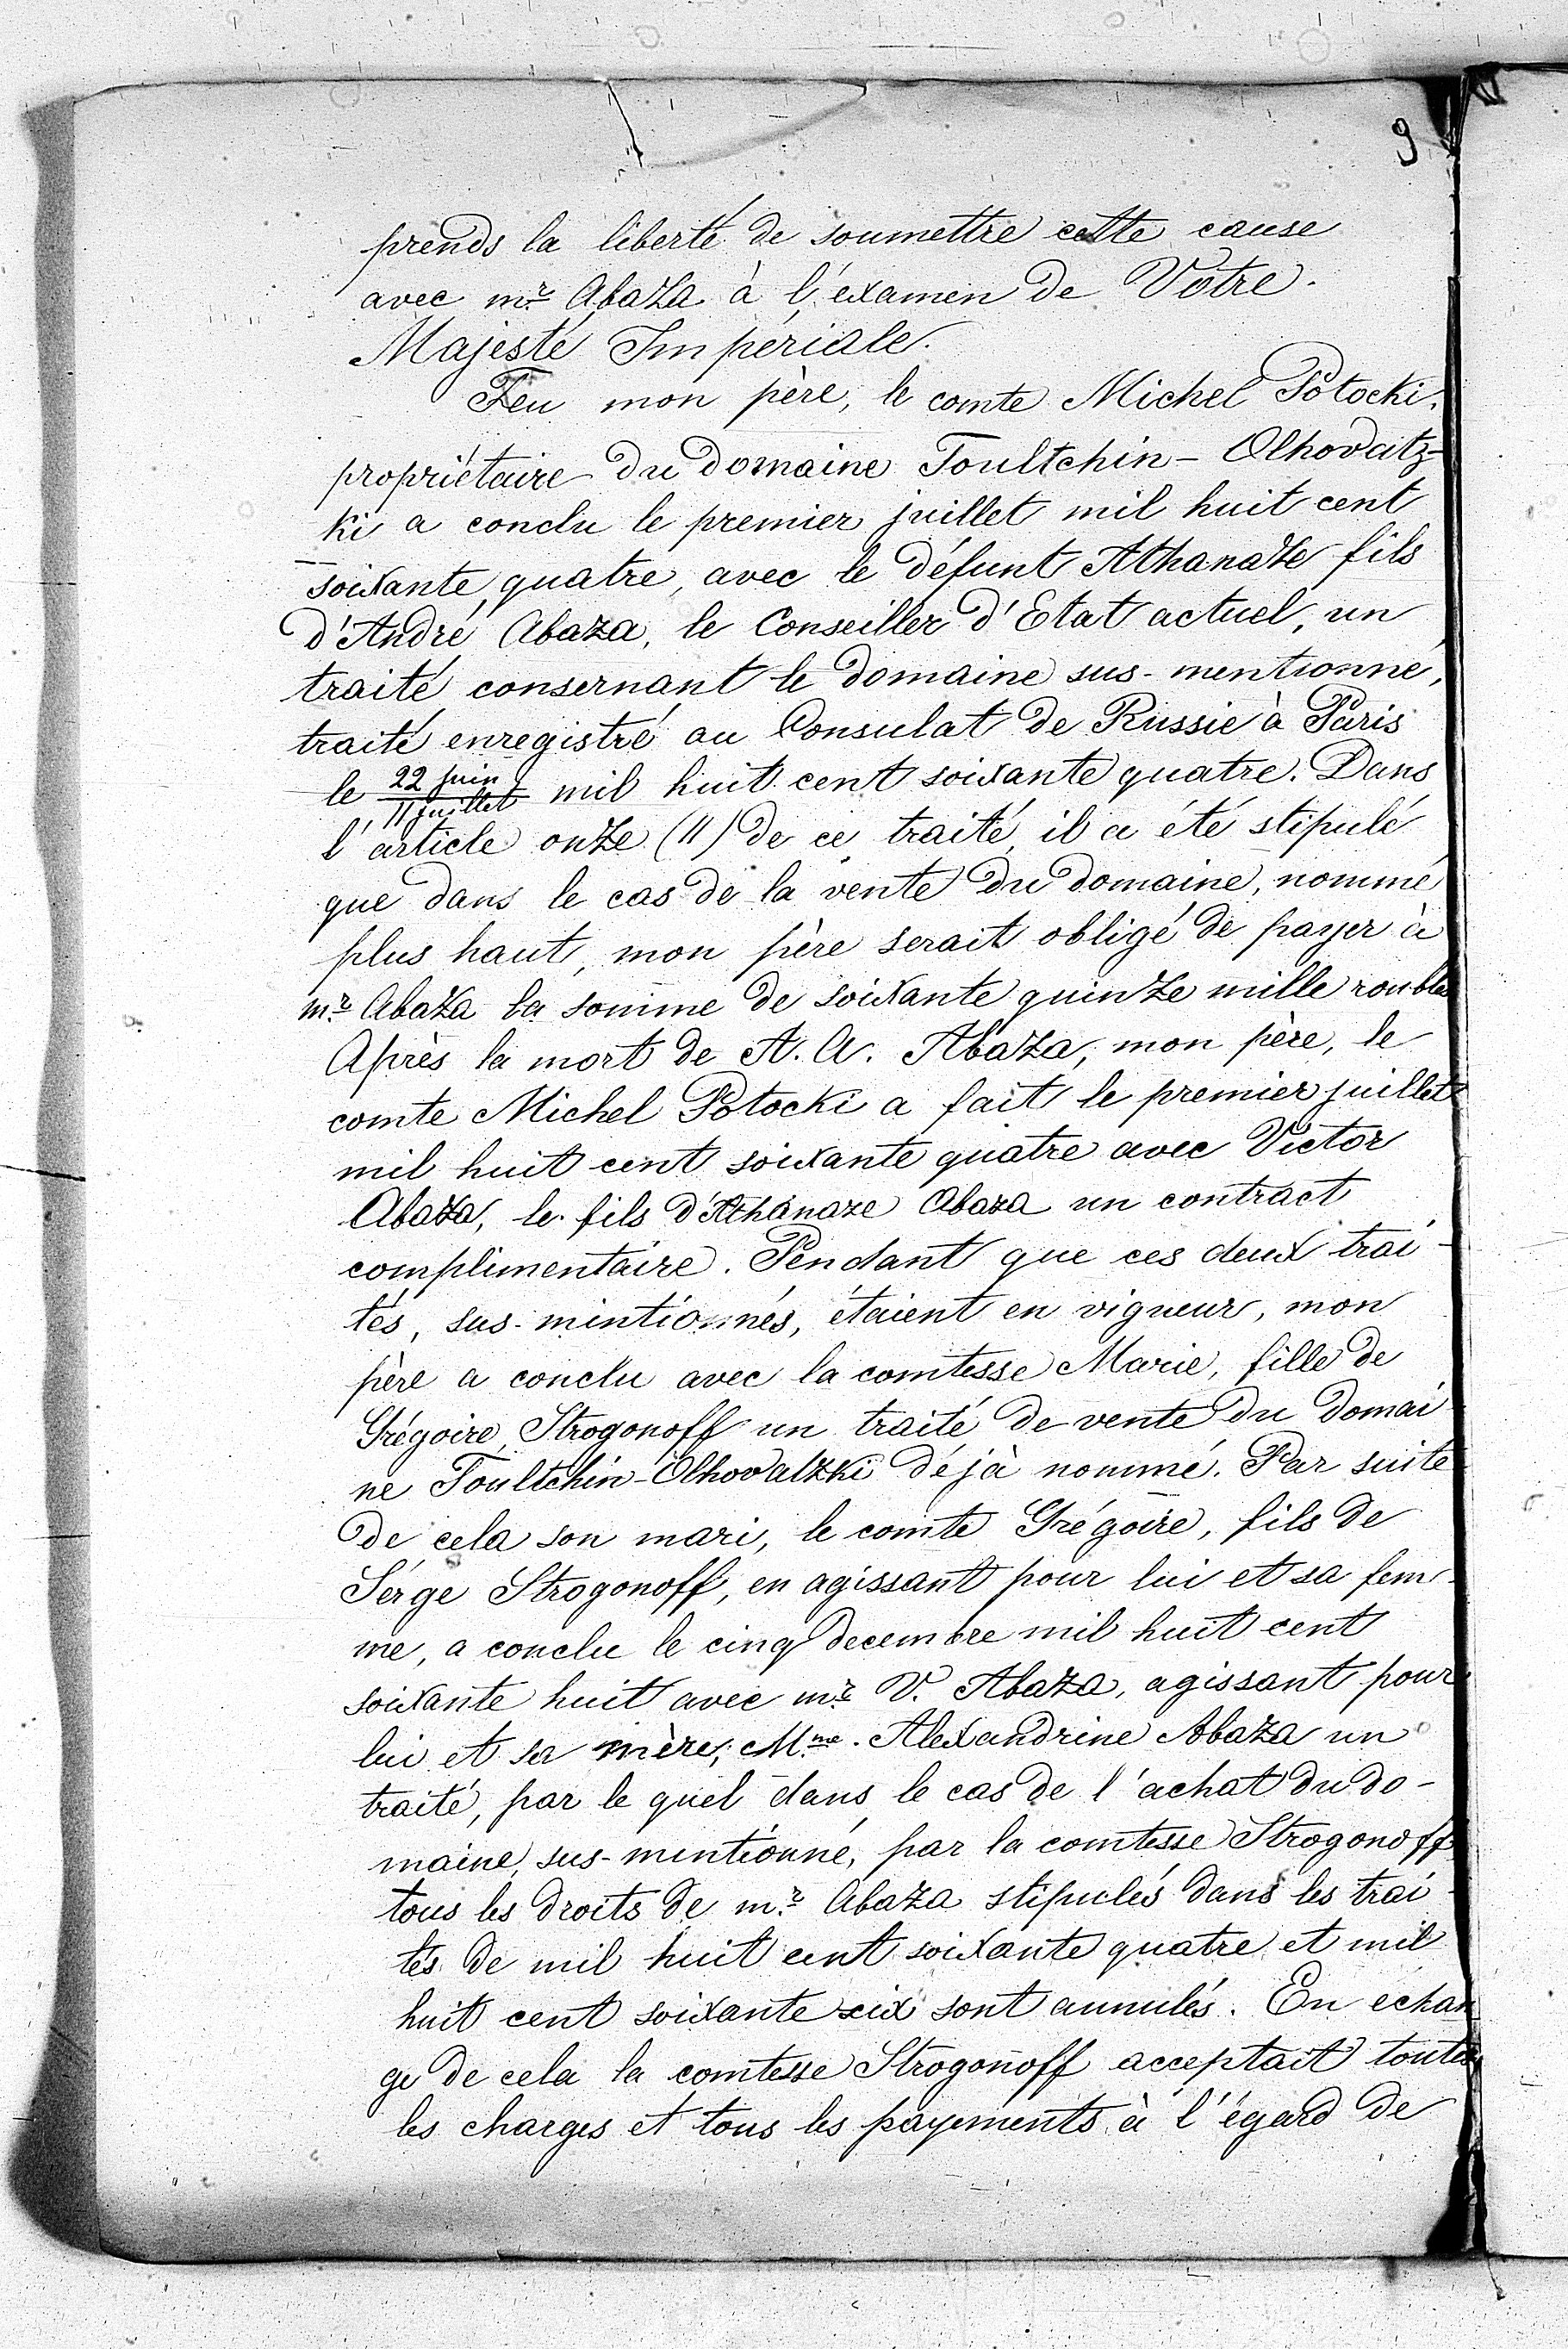 9
prends la liberté de soumettre cette cause
avec mr. Abaza à l'éxamen de Votre
Majesté Impériale.
Feu mon père, le comte Michel Potocki,
propriétaire du domaine Toultchin-Olhovatz-
ki a conclu le premier juillet mil huit cent
soixante quatre, avec le défunt Athanaze fils
d'André Abaza, le Conseiller d'Etat actuel, un
traité consernant le domaine sus-mentionné,
traité enregistré au Consulat de Russie à Paris
le 22 juin/11 juillet mil huit cent soixante quatre. Dans
l'article onze (11) de ce traité il a été stipulé
que dans le cas de la vente du domaine, nommé
plus haut, mon père serait obligé de payer à
mr. Abaza la somme de soixante quinze mille roubles
Après la mort de A. A. Abaza, mon père, le
comte Michel Potocki a fait le premier juillet
mil huit cent soixante quatre avec Victor
Abaza, le fils d'Athanaze Abaza un contract
complimentaire. Pendant que ces deux trai-
tés, sus-mintionnés, étaient en vigueur, mon
père a conclu avec la comtesse Marie, fille de
Grégoire, Strogonoff un traité de vente du domai-
ne Toultchin-Olhovatzki déjà nommé. Par suite
de cela son mari, le comte Grégoire, fils de
Sérge Strogonoff, en agissant pour lui et sa fem-
me, a conclu le cinq decembre mil huit cent
soixante huit avec mr. V. Abaza, agissant pour
lui et sa mère, Mme. Alexandrine Abaza un
traité, par le quel dans le cas de l'achat du do-
maine, sus-mintionné, par la comtesse Strogonoff
tous les droits de mr. Abaza stipulés dans les trai-
tés de mil huit cent soixante quatre et mil
huit cent soixante six sont annulés. En échan
ge de cela la comtesse Strogonoff acceptait toutes
les charges et tous les payements à l'égard de